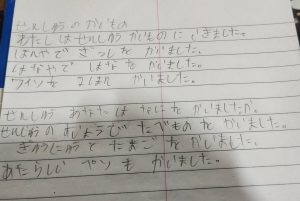 せんしゅうのかいもの
わたしはせんしゅうかいものにいきました。
ほんやでざっしをかいました。
はなやではなをかいました。
ワインを 2ほん かいました。
せんしゅう あなたはなにをかいましたか。
せんしゅうのすいようびたべものをかいました。
ぎゅうにゅうとたまごをかいました。
あたらしいペンもかいました。